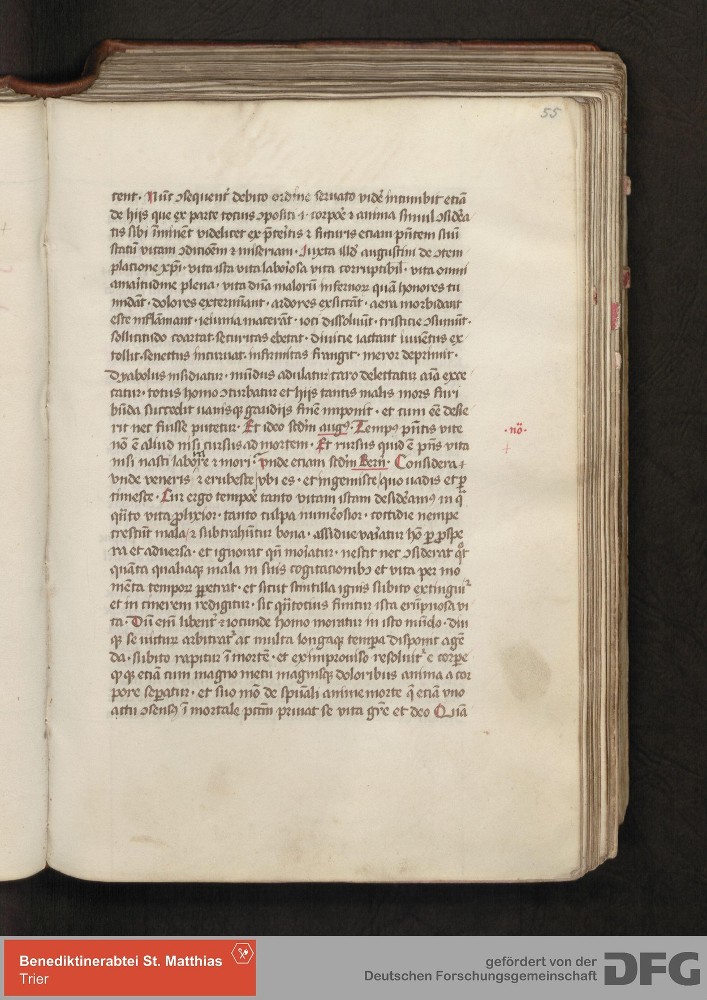 55
tent. Nūc ɔsequent᷑ debito ordine seruato vidē incumbit etiā
de hijs que ex parte totius ɔpositi .i. corpoꝛe ⁊ anima simul ɔsidēa
tis sibi īminēt videlicet ex p̄teītis ⁊ futuris etiam pn̄tem suū
statū vitam ɔdicioēm ⁊ miseriam. Iuxta illd᷑ augustini de ɔtem
platione xp̄i. vita ista vita laboꝛiosa vita corruptibil᷑. vita omni
amaritudine plena. vita dn̄a maloꝝ infernoꝝ quā honores tu
midāt. dolores extermīant. ardores exsiccāt. aera morbidant
esce inflāmant. ieiunia macerāt. ioci dissoluūt. tristicie ɔsumūt.
sollicitudo coartat. securitas ebetat. diuicie iactant iuuentus ex
tollit. senectus incuruat. infirmitas frangit. meror deprimit.
Dyabolus insidiatur. mūdus adulatur caro delectatur aīa exce
catur. totus homo ɔturbatur et hijs tantis malis mors furi
būda succedit uanisqꝫ gaudijs finē imponit. et cum eē desie
rit nec fuisse putetur. Et ideo scd̄m augꝰ. Tempꝰ pn̄tis vite
nō ē aliud nisi cursus ad mortem. Et rursus quid ē pn̄s vita
nisi nasci laborare ⁊ mori. Vnde etiam scd̄m Bern̄. Considera
vnde veneris ⁊ erubesce vbi es. et ingemisce quo uadis et ꝑ
timesce. Cur ergo tempoꝛe tanto vitam istam desidēamꝰ in q̄
qn̄to vita prolixior. tanto culpa numēosior. cottidie nempe
crescūt mala ⁊ subtrahūtur bona. assidue vaꝛiatur hō ꝑ ꝓspe
ra et aduersa. et ignorat qn̄ moꝛiatur. nescit nec ɔsiderat qͦt
quāta qualiaqꝫ mala in suis cogitacionibꝫ et vita per mo
mēta tempoꝝ ꝑpetrat. et sicut scintilla ignis subito extinguit᷑
et in cinerem redigitur. sic qn̄tocius finitur ista erūpnosa vi
ta. Dū em̄ libent᷑ ⁊ iocunde homo moratur in isto mūdo. diu
qꝫ se uictur᷑ arbitrat᷑ ac multa longaqꝫ tempꝛa disponit agē
da. subito rapitur ī mortē. et ex improuiso resoluit᷑ e corpꝛe
qꝫ etiā cum magno metu magnisqꝫ doloribus anima a cor
pore sepatur. et suo mō de spūali anime morte q̄ etiā vno
actu ɔsensꝰ ī mortale pctm̄ priuat se vita gr̄e et deo Quā
.nō.
Benediktinerabtei St. Matthias
Trier
gefördert von der
Deutschen Forschungsgemeinschaft
DFG